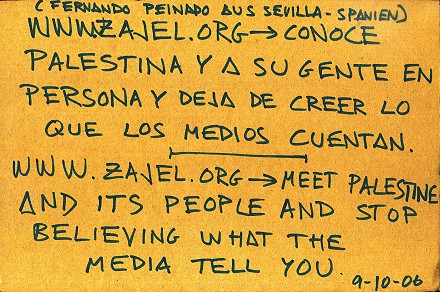 (FERNANDO PEINADO BUS SEVILLA - SPANIEN)
WWW.ZAJEL.ORG → CONOCE
PALESTINA Y A SU GENTE EN
PERSONA Y DEJA DE CREER LO
QUE LOS MEDIOS CUENTAN.
WWW.ZAJEL.ORG → MEET PALESTINE
AND ITS PEOPLE AND STOP
BELIEVING WHAT THE
MEDIA TELL YOU.
9-10-06